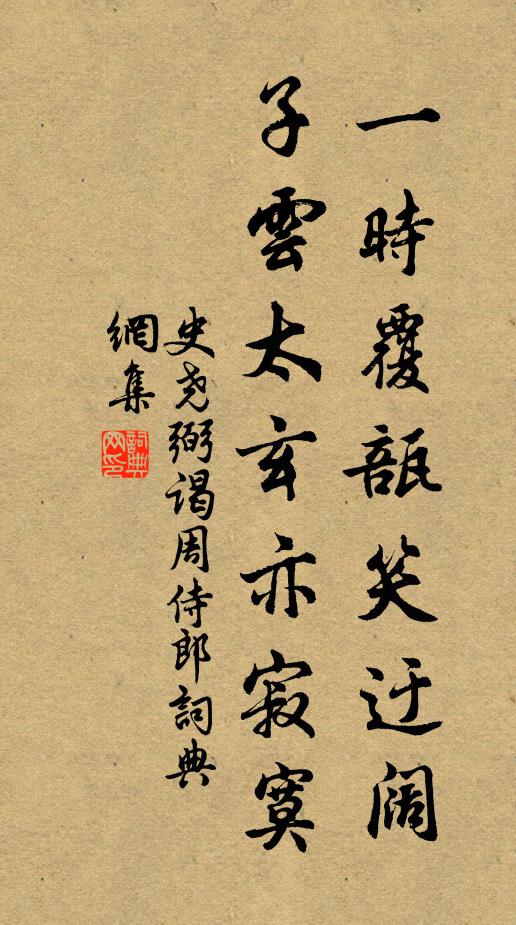 一時覆瓿笑迂阔
子雲太玄亦寂寞
史尧弼谒周侍郎詞典
網集
詞典
网印